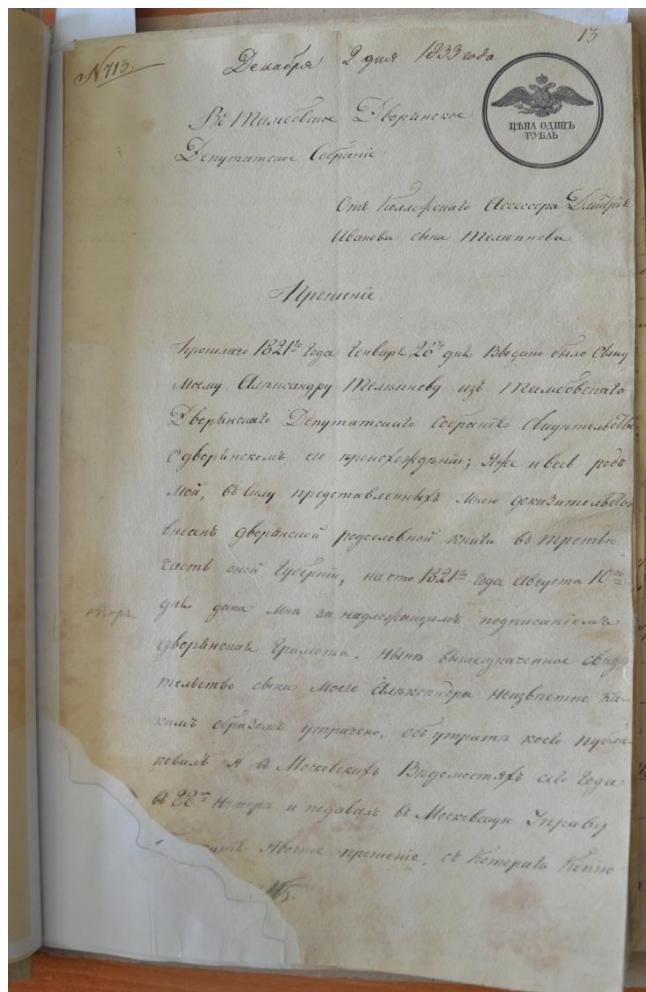 13
№ 713.
Декабря 9 дня 1833 года
ЦѢНА ОДИНЪ
РУБЛЬ
Въ Тамбовское Дворянское
Депутатское Собраніе
Отъ Коллежскаго Ассесора Дмитрія
Иванова сына Телепнева
Прошеніе.
Прошлаго 1821го Года Генваря 28го дня Выдано было Сыну
Моему Александру Телепневу изъ Тамбовскаго
Дворянскаго Депутатскаго Собранія Свидѣтельство
о дворянскомъ его происхожденіи; и весь родъ
мой, въ силу представленныхъ мною доказательствъ
внесенъ дворянской родословной книги въ третью
часть оной Губерніи, на что 1821го Года Августа 10го
дня дана мнѣ за надлежащимъ подписаніемъ
дворянская Грамота. Нынѣ вышеозначенное свидѣ
тельство сына Моего Александра Неизвѣстно ка
кимъ образомъ утрачено, объ утратѣ коего публи
ковалъ я въ Московскихъ Вѣдомостяхъ сего Года
въ 22го Ноября и подавалъ въ Московскую Управу
Явочное прошеніе, съ Котораго Копію